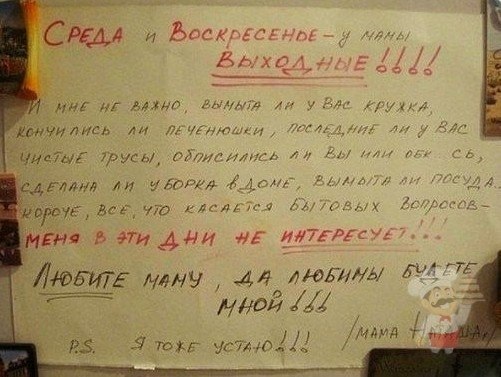 Среда и Воскресенье - у мамы
выходные!!!!
И мне не важно, вымыта ли у вас кружка,
кончились ли печенюшки, последние ли у вас
чистые трусы, обписились ли вы или обк...сь,
сделана ли уборка в доме, вымыта ли посуда.
короче, все, что касается бытовых вопросов -
меня в эти дни не интересует!!!
Любите маму, да любимы будете
мной!!!
/мама Наташа/
P.S. Я тоже устаю!!!